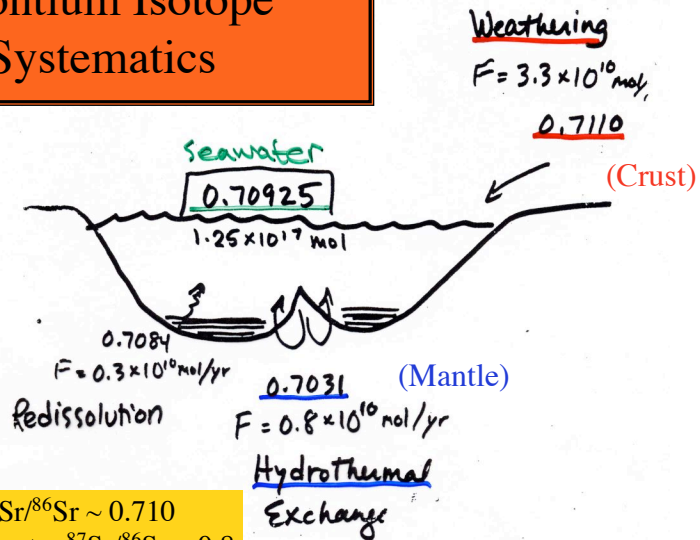 Strontium Isotope
Systematics
Weathering
F = 3.3 × 10¹⁰ mol/
0.7110
(Crust)
seawater
0.70925
1.25 × 10¹⁷ mol
0.7084
F = 0.3 × 10¹⁰ mol/yr
Redissolution
0.7031
(Mantle)
F = 0.8 × 10¹⁰ mol/yr
Hydrothermal
Exchange
Sr/⁸⁶Sr ~ 0.710